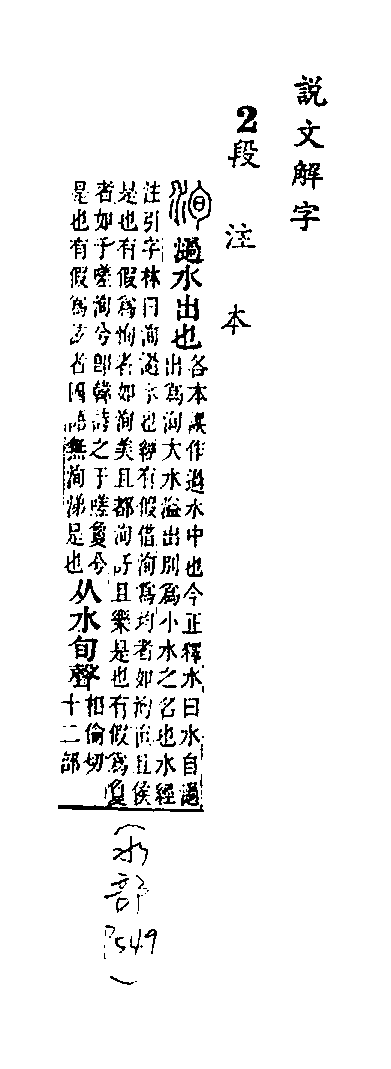 說文解字
2段注本
過水出也
各本誤作過水中也今正釋水曰水自過
出爲洵大水溢出別爲小水之名也水經
注引字林曰洵過水也經有假借洵爲均者如洵直且侯
是也有假爲恂者如洵美且都洵訏且樂是也有假爲夐
者如于嗟洵兮卽韓詩之于嗟夐兮
是也有假爲泫者國語無洵涕是也
从水旬聲
相倫切
十二部
(水部P549)